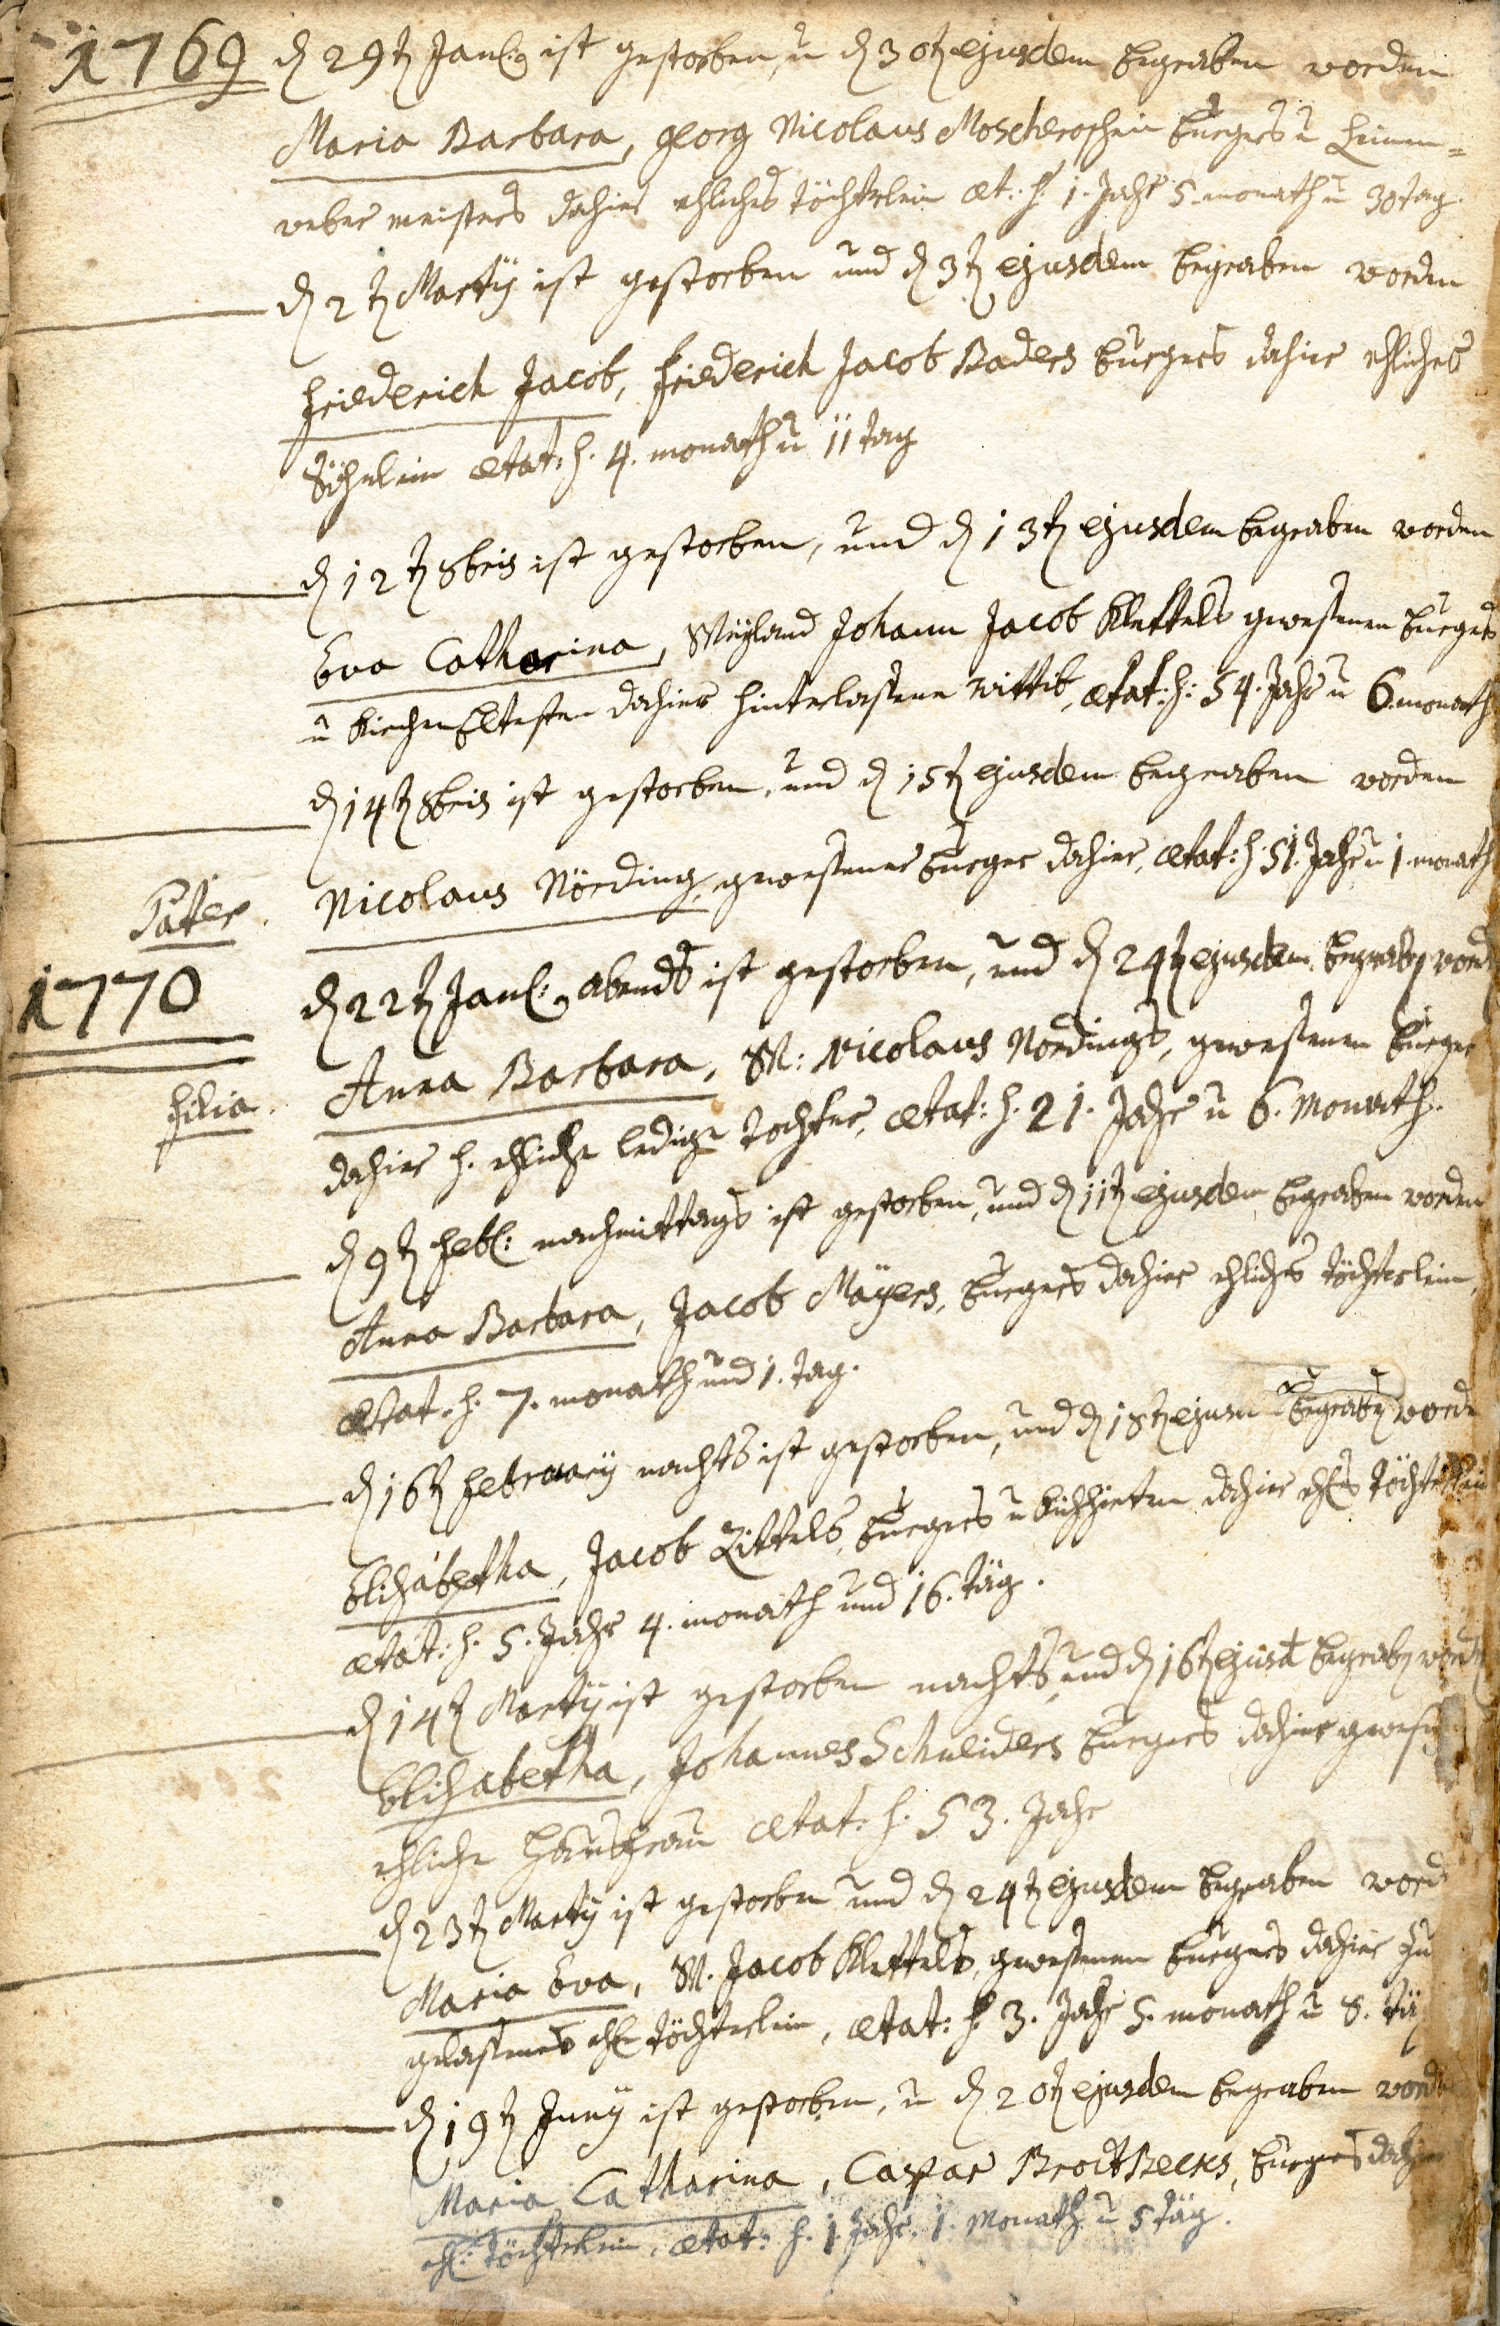 1769 d 29t Janr: ist gestorben, u d 30t ejusdem begraben worden
Maria Barbara, Georg Nicolaus Moscherosch burgers u Leinen=
weber meisters dahier ehliches töchterlein æt: s. 1. Jahr 5. monath u 30 tag.
d 2t Martÿ ist gestorben und d 3t ejusdem begraben worden
Friederich Jacob, Friederich Jacob Baders burgers dahier ehliches
Söhnlein ætat: s. 4. monath u 11 tag
d 12t 8bris ist gestorben, und d 13t ejusdem begraben worden
Eva Catharina, Weÿland Johann Jacob Klettels gewesenen burgers
u Kirchen Eltesten dahier hinterlassene Wittib, ætat: s: 54. Jahr u 6. monath
d 14t 8bris ist gestorben, und d 15t ejusdem begraben worden
Pater. Nicolaus Nörding, gewesener burger dahier, ætat: s. 51. Jahr u 1. monath
1770 d 22t Janr: abends ist gestorben, und d 24t ejusdem begraben word
Anna Barbara, W: Nicolaus Nordings, gewesenen burger
filia. dahier s. ehliche ledige Tochter, ætat: s. 21. Jahr u 6. Monath.
d 9t Febr: nachmittags ist gestorben, und d 11t ejusdem begraben worden
Anna Barbara, Jacob Mäyers, burgers dahier ehliches töchterlein,
ætat. s. 7. monath und 1. tag.
d 16t Februarÿ nachts ist gestorben, und d 18t ejusd begraben worde
Elisabetha, Jacob Zittels, burgers u Kuhhirten dahier ehl töchterlein
ætat: s. 5. Jahr 4. monath und 16. täg.
d 14t Martÿ ist gestorben nachts, und d 16t ejusd begraben word
Elisabetha, Johannes Schneiders burgers dahier gewes
ehliche Haußfrau ætat: s. 53. Jahr
d 23t Martÿ ist gestorben und d 24t ejusdem begraben word
Maria Eva, W. Jacob Klettels, gewesenen burgers dahier zu
gelassenes ehl töchterlein, ætat: s. 3. Jahr 5. monath u 8. tä
d 19t Junÿ ist gestorben, u d 20t ejusdem begraben worde
Maria Catharina, Caspar BrodtBecks, burgers dahier
ehl: töchterlein, ætat: s. 1. Jahr. 1. Monath u 5 täg.